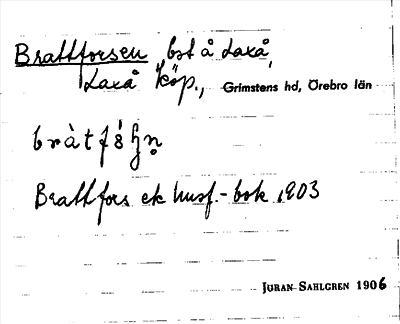 Brattforsen bst å Laxå,
Laxå köp., Grimstens hd, Örebro län
Brattfors ek husf.-bok 1903
JURAN-SAHLGREN 1906